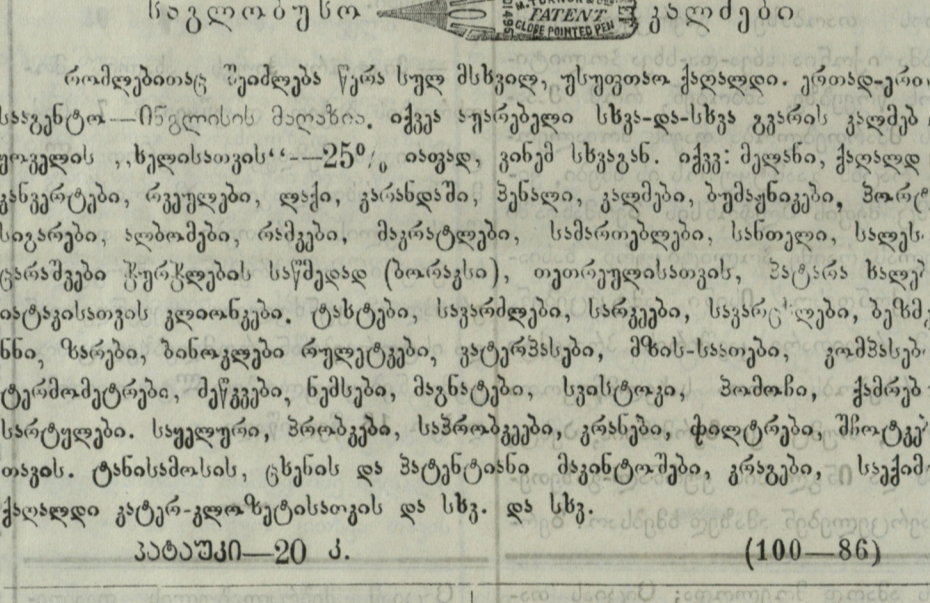 საგლობუსო PATENT GLOBE POINTED PEN კალმები
რომლებითაც შეიძლება წერა სულ მსხვილ, უსუფთაო ქაღალდი. ერთად-ერთი
სააგენტო—ინგლისის მაღაზია. იქვეა აუარებელი სხვა-და-სხვა გვარის კალმებ
ყოველის „ხელისათვის“—25% იაფად, ვინემ სხვაგან. იქვე: მელანი, ქაღალდ
კანვერტები, რვეულები, ლაქი, კარანდაში, პენალი, კალმები, ბუმაჟნიკები, პორტ
სიგარები, ალბომები, რამკები, მაკრატლები, სამართებლები, სანთელი, სალეს
ცარაშკები ჭურჭლების საწმედად (ბორაკსი), თეთრეულისათვის, პატარა ხალე
იატაკისათვის კლიონკები. ტახტები, სავარძლები, სარკეები, სავარცხლები, ბეზმე
ნნი, ზარები, ბინოკლები რულეტკები, ვატერპასები, მზის-საათები, კომპასებ
ტერმომეტრები, მეწკვები, ნემსები, მაგნატები, სვისტოკი, პომოჩი, ქამრებ
სარტყლები. საყელური, პრობკები, საპრობკეები, კრანები, ფილტრები, შჩოტკე
თავის. ტანისამოსის, ცხენის და პატენტიანი მაკინტოშები, კრაგები, საექიმ
ქაღალდი კატერ-კლოზეტისათვის და სხვ. და სხვ.
პატაუკი—20 კ. (100—86)